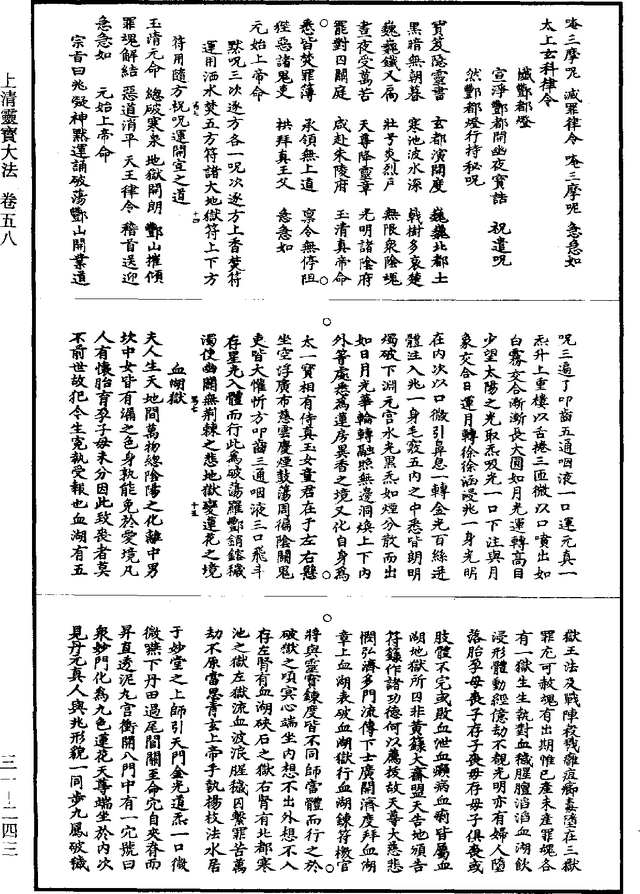 唵三摩呢 滅罪律令 唵三摩呢 急急如
太上玄科律令
懺酆都燈
宣淨酆都開幽夜寶誥 祝遣呪
然酆都燈行持秘呪
寶笈隱靈書 玄都演開度 巍巍北都土
黑暗無朝暮 寒池波水深 戟樹多哀楚
巍巍鐵叉扃 壯号炎烈戶 無限衆陰魂
晝夜受萬苦 天尊降靈章 光明諸陰府
罷對四關庭 咸赴朱陵府 玉清真帝命
悉皆焚罪簿 承領無上道 禀令無停阻
猩惡諸鬼吏 拱拜真王父 急急如
元始上帝命
默呪三次逐方各一呪次逐方上香焚符
運用洒水焚五方符諸大地獄符上下方
符用隨方祝呪運開宣之道
玉清元命 總破寒泉 地獄開朗 酆山摧傾
罪魂解結 惡道消平 天王律令 稽首送迎
急急如 元始上帝命
宗首曰兆凝神默運誦破蕩酆山開業道
呪三遍了叩齒五通咽液一口運元真一
炁升上重樓以舌捲三匝微以口噴出如
白霧交合漸漸長大圓如月光運轉高目
少望太陽之光取炁吸光一口下注與月
象交合日運月轉徐徐涵浸兆一身光明
在內次以口微引鼻息一轉金光百絲迸
體注入兆一身毛竅五內之中悉皆朗明
燭破下淵元宮水光黑炁如煙分散而出
如日月光華輪轉融照無邊洞煥上下內
外等處悉為蓮房異香之境又化自身為
太一寶相有侍真玉女童君在于左右懸
坐空浮廣布慈雲慶煙鼓蕩周徧陰關鬼
吏皆大懽忻方叩齒三通咽液三口飛斗
存星光入體而行此為破蕩羅酆銷鎔穢
濁使幽關無荆棘之悲地獄變蓮花之境
血湖獄
夫人生天地間萬物總陰陽之化離中男
坎中女皆有漏之色身孰能免於愛境凡
人有懷胎育孕子母未分因此致喪者莫
不前世故犯今生寃執受報也血湖有五
獄王法及戰陣殺戮難疽癆毒墮在三獄
罪尤可赦魂有出期惟已產未產罪魂各
有一獄生生執對血穢腥膻滔滔血湖飲
浸形體動經億劫不覩光明亦有婦人墮
落胎孕母喪子存子喪母存母子俱喪或
肢體不完或敗血泄血癩病血痢皆屬血
湖地獄所囚非黃籙大齋盟天告地頒告
符籙作諸功德何以薦拔故天尊大慈悲
憫弘濟多門流傳下士廣開濟度拜血湖
章上血湖表破血湖獄行血湖鍊符檄官
將與靈寶鍊度皆不同師當體而行之於
破獄之頃冥心端坐內想不出外想不入
存左腎有血湖硤石之獄右腎有北都寒
池之獄左獄流血波浪腥穢囚繫罪苦萬
劫不原當思青玄上帝手執楊枝法水居
于妙堂之上師引天門金光道炁一口微
微嚥下丹田過尾閭關至命宂自夾脊而
昇直透泥丸宮衝開八門中有一宂號曰
衆妙門化為九色蓮花天尊端坐於內次
見丹元真人與兆形貌一同步九鳳破穢
上清靈寶大法 卷五八
三一—二四三